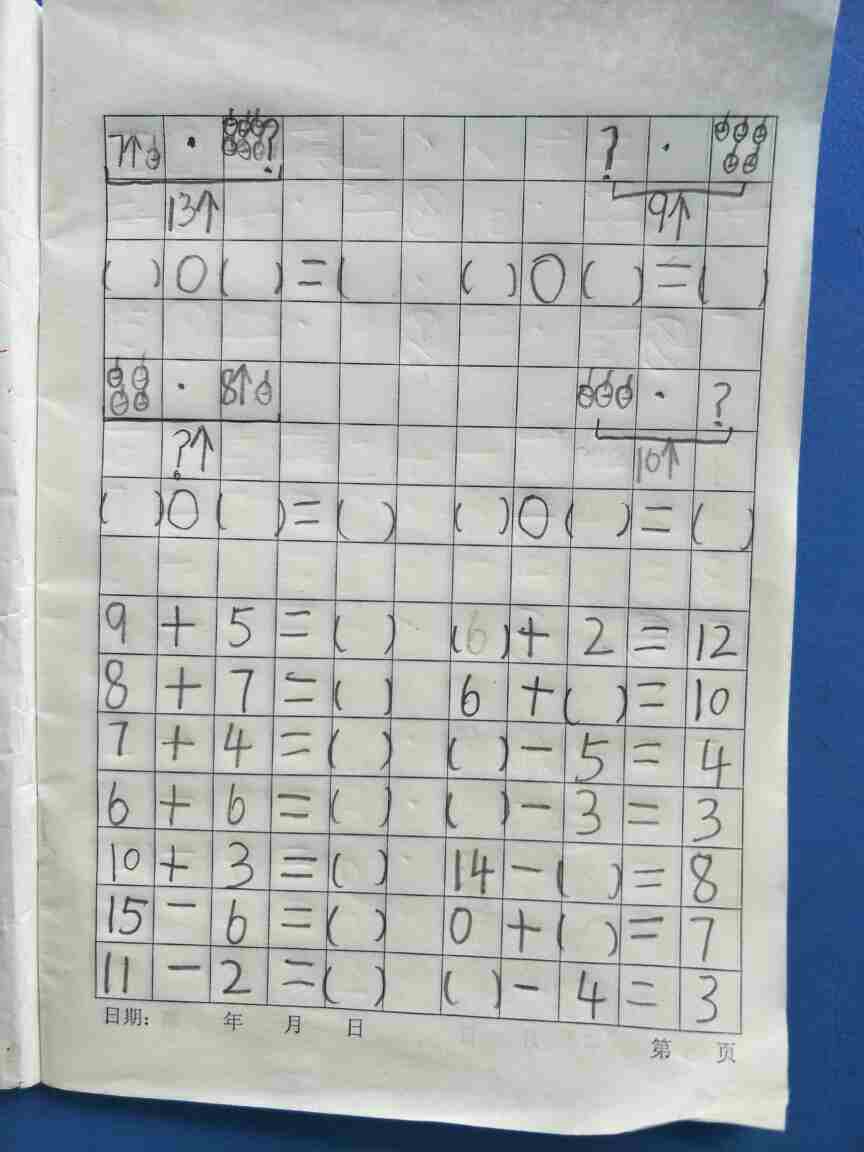 7个 · ? ? ·
13个 9个
( )○( )=( ( )○( )=( )
· 8个 · ?
?个 10个
( )○( )=( ) ( )○( )=( )
9+5=( ) (6)+2=12
8+7=( ) 6+( )=10
7+4=( ) ( )-5=4
6+6=( ) ( )-3=3
10+3=( ) 14-( )=8
15-6=( ) 0+( )=7
11-2=( ) ( )-4=3
日期: 年 月 日
第 页